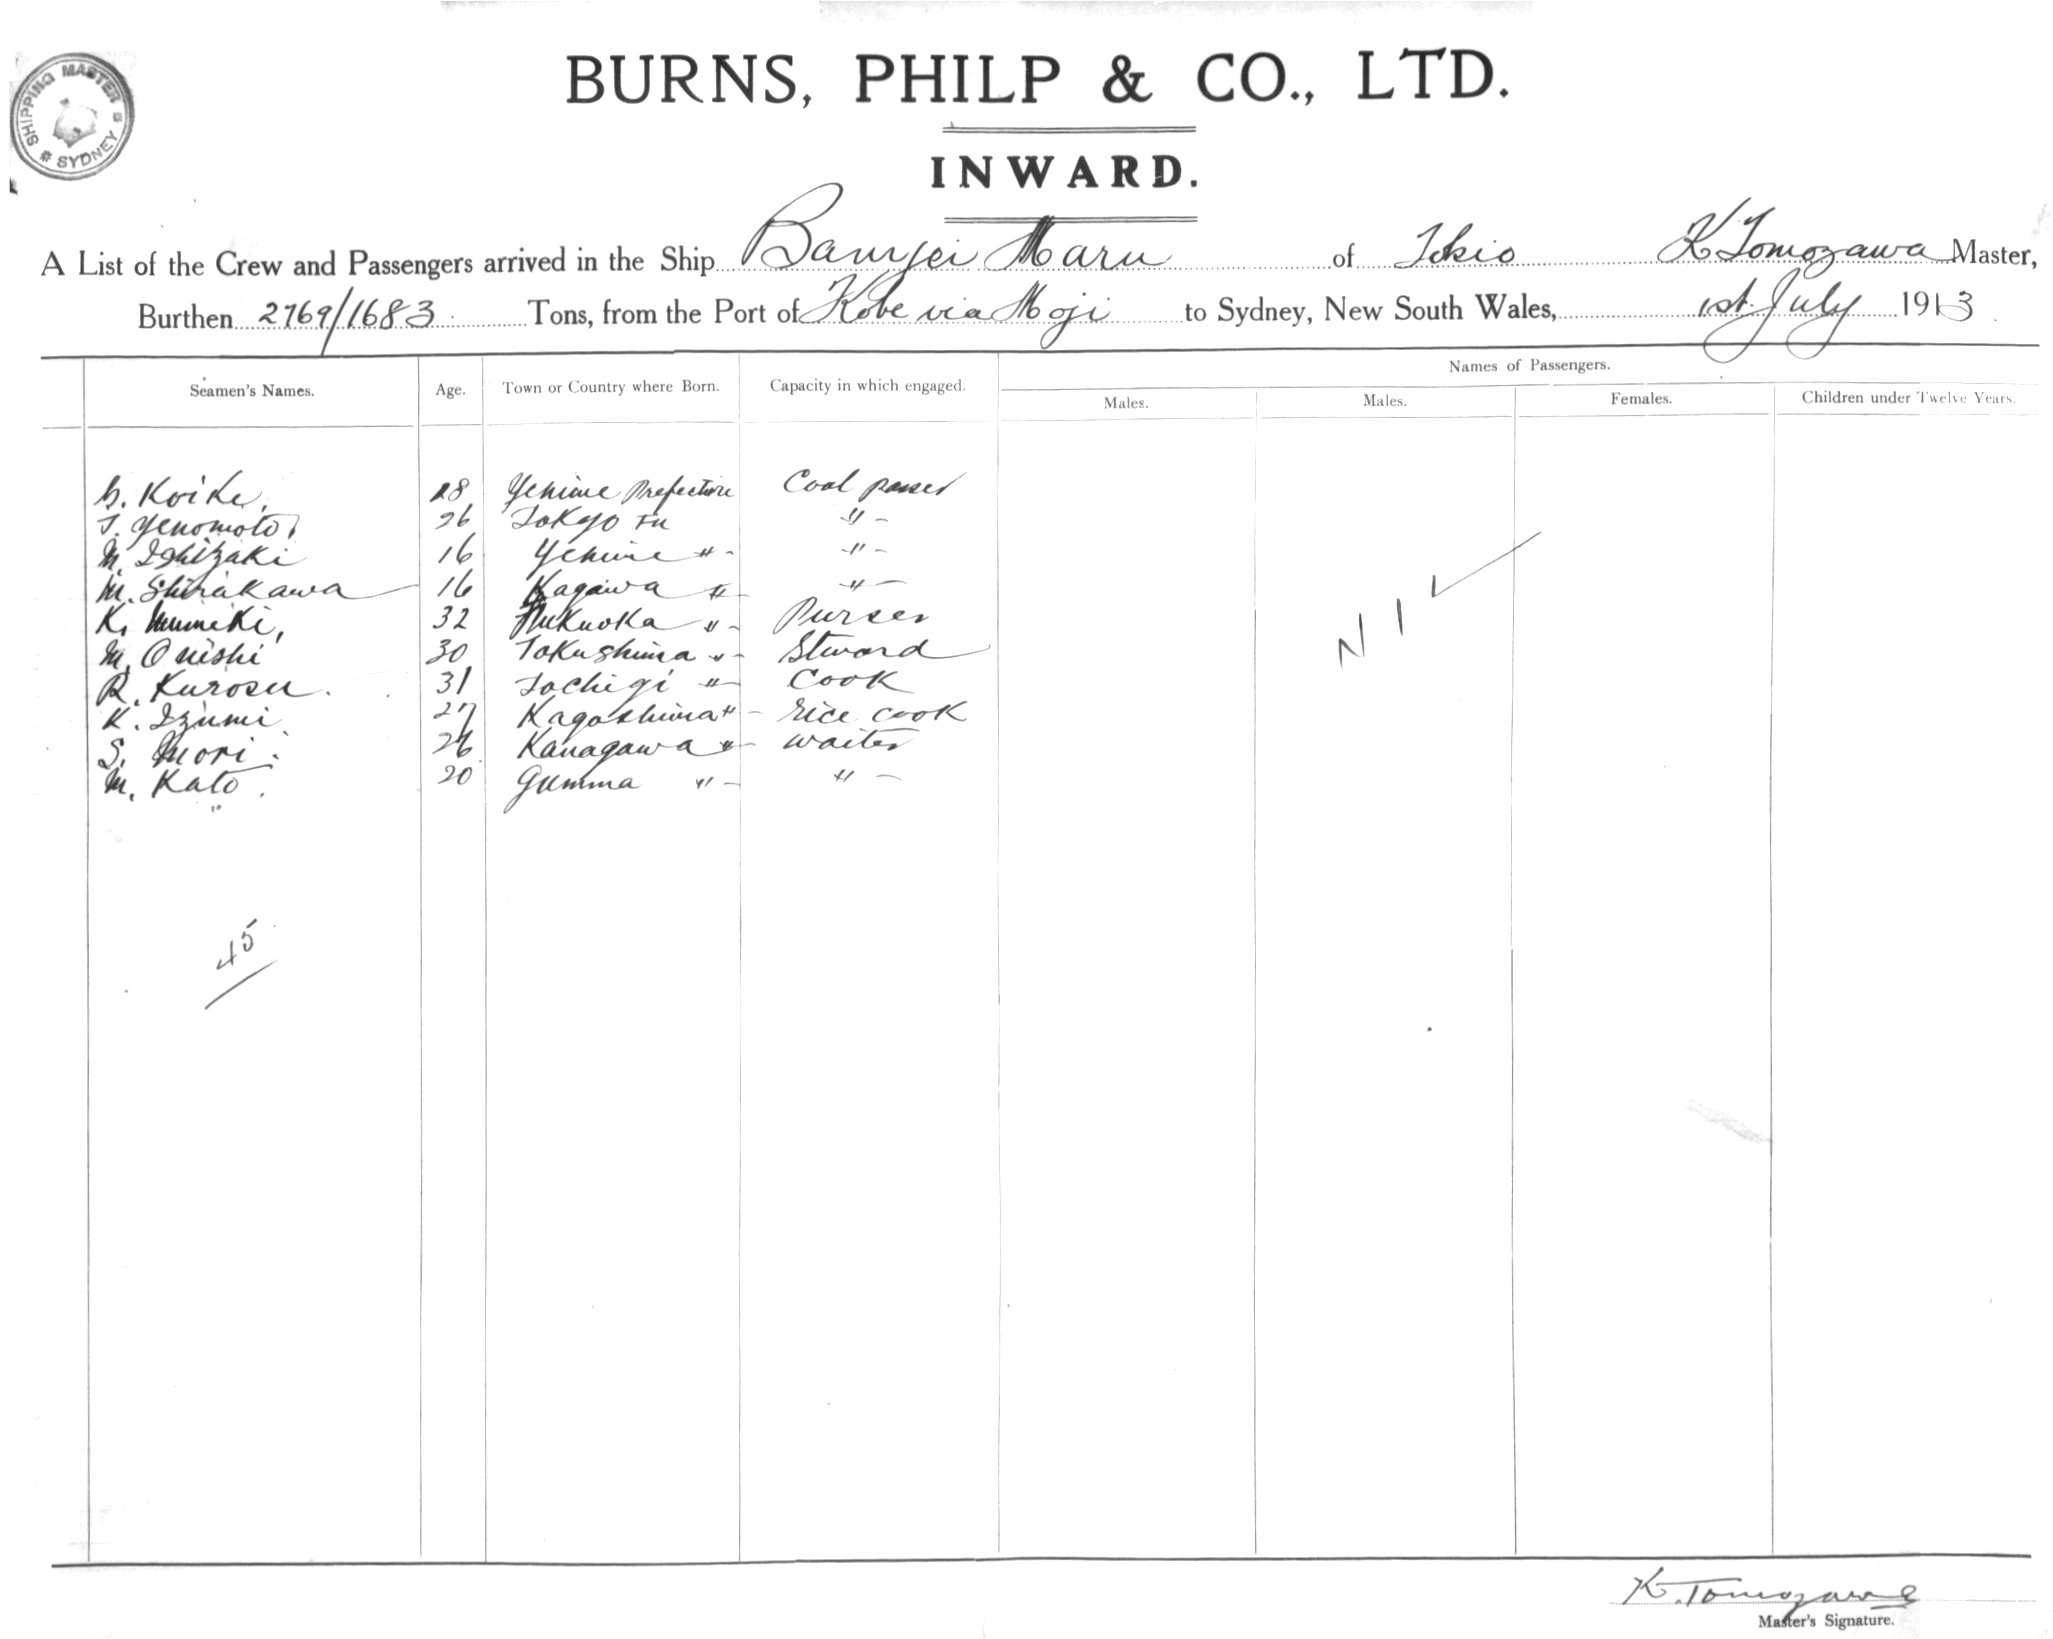 SHIPPING MASTER
* SYDNEY *
BURNS, PHILP & CO., LTD.
INWARD.
A List of the Crew and Passengers arrived in the Ship Banyei Maru of Tokio K Tomozawa Master,
Burthen 2769/1683 Tons, from the Port of Kobe via Moji to Sydney, New South Wales, 1st July 1913
Names of Passengers.
Seamen's Names. Age. Town or Country where Born. Capacity in which engaged. Males. Males. Females. Children under Twelve Years.
G. Koike, 28 Yehime Prefecture Coal passer
T. Yenomoto, 26 Tokyo Fu " -
M. Ishizaki 16 Yehime " - " -
M. Shirakawa 16 Kagawa " - " -
K. 32 Fukuoka " - Purser
M. Onishi 30 Tokushima " - Steward
R. Kurosu. 31 Tochigi " - Cook
K. Izumi 27 Kagoshima " - rice cook
S. Mori. 26 Kanagawa " - waiter
M. Kato. 20 Gumma " - " -
NIL
45
K. Tomozawa
Master's Signature.